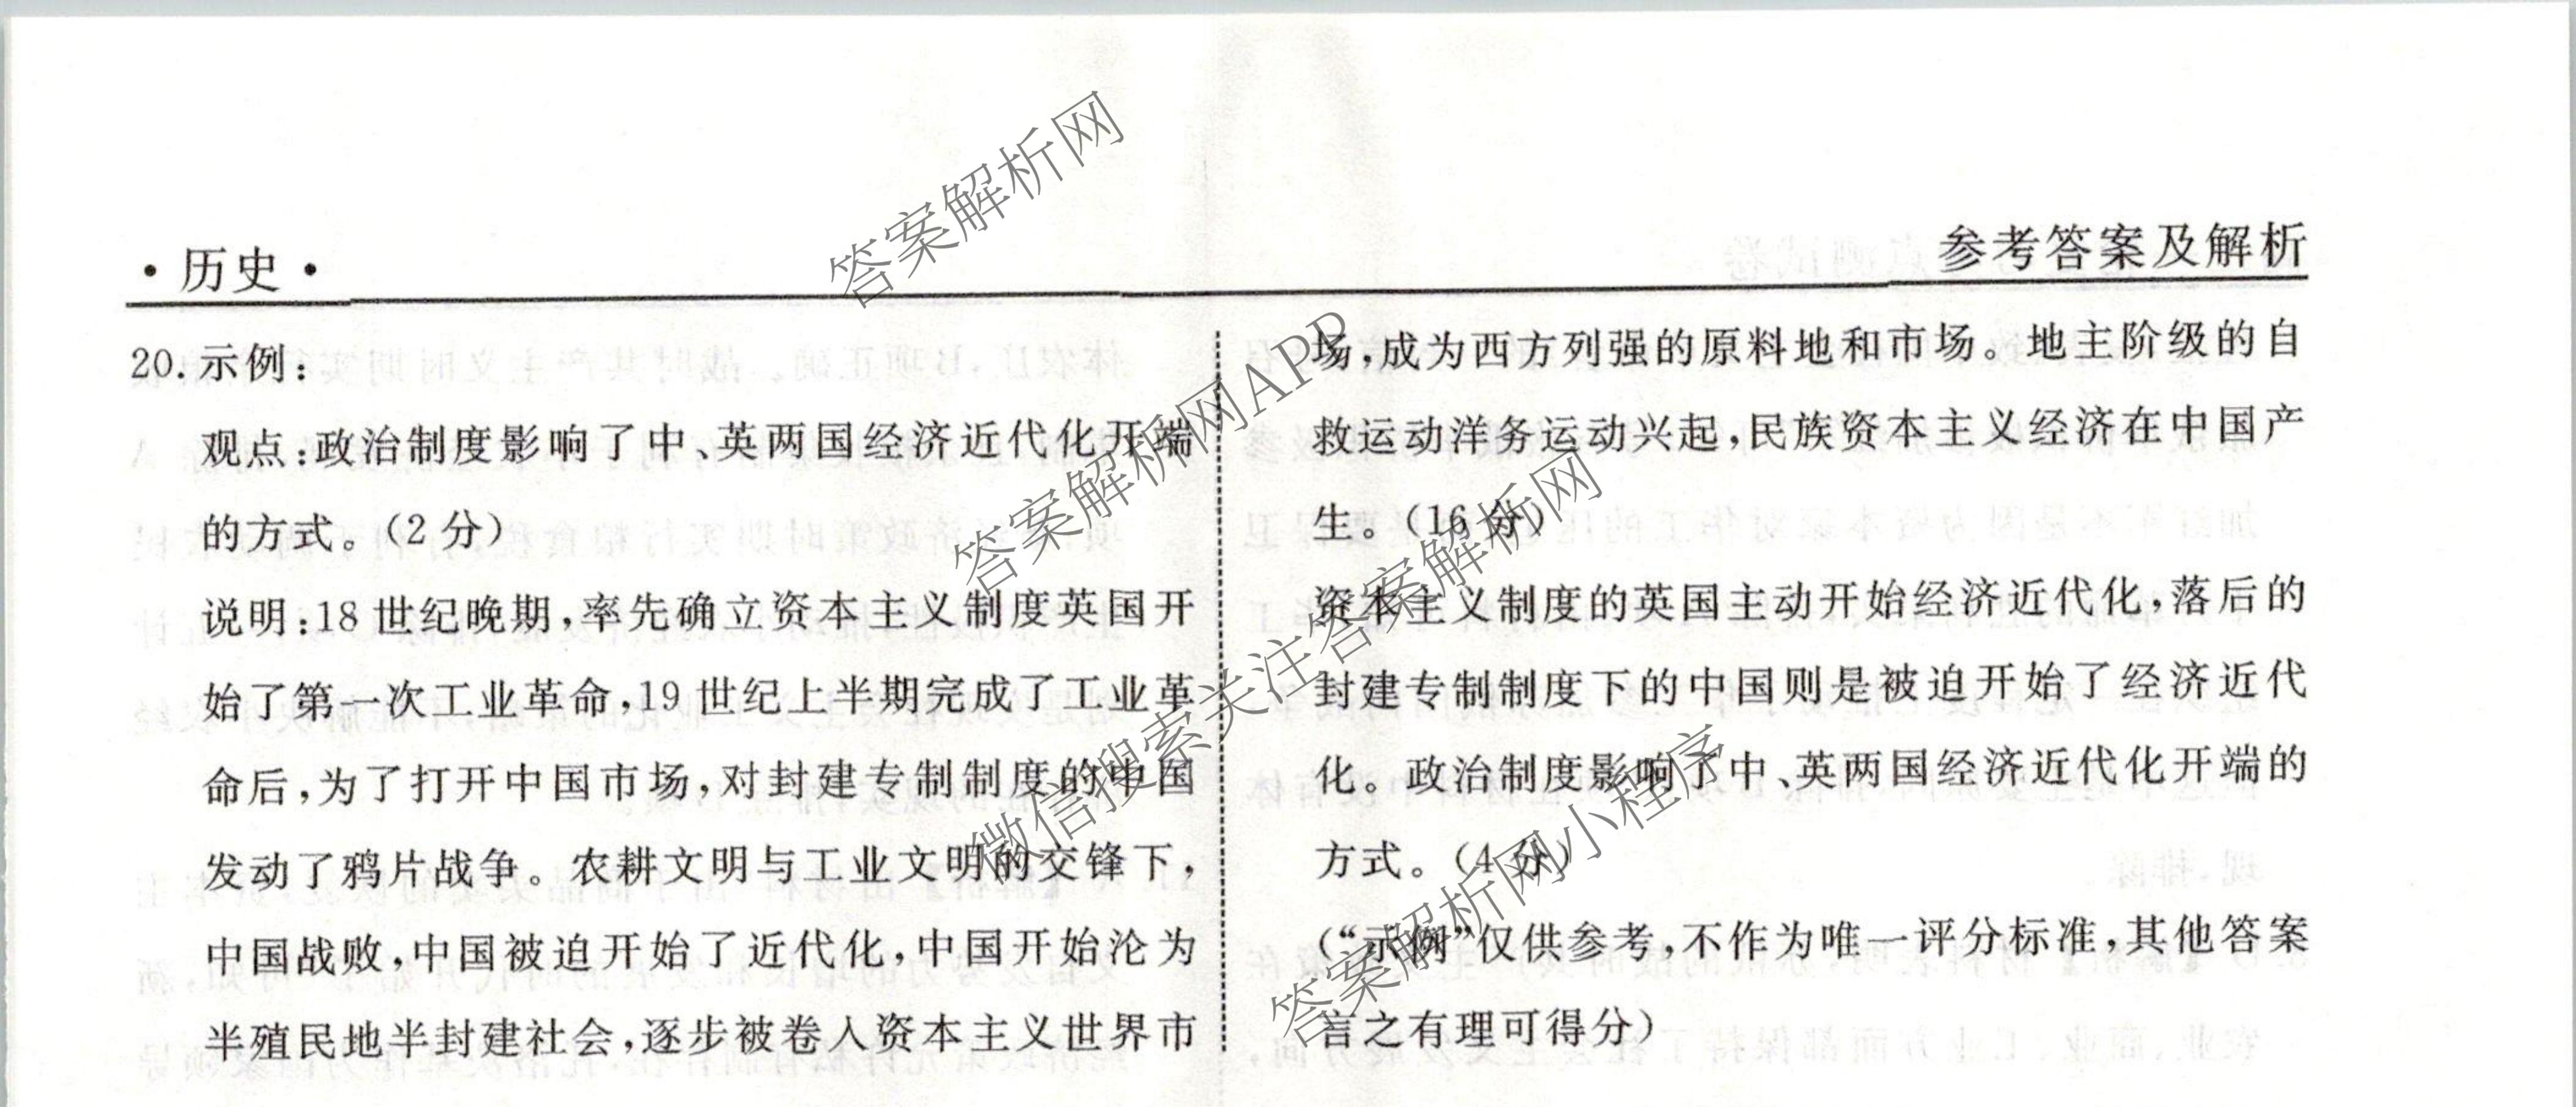 ·历史·
参考答案及解析
20.示例：
观点：政治制度影响了中、英两国经济近代化开端
的方式。（2分）
说明：18世纪晚期，率先确立资本主义制度英国开
始了第一次工业革命，19世纪上半期完成了工业革
命后，为了打开中国市场，对封建专制制度的中国
发动了鸦片战争。农耕文明与工业文明的交锋下，
中国战败，中国被迫开始了近代化，中国开始沦为
半殖民地半封建社会，逐步被卷入资本主义世界市
场，成为西方列强的原料地和市场。地主阶级的自
救运动洋务运动兴起，民族资本主义经济在中国产
生。（16分）
资本主义制度的英国主动开始经济近代化，落后的
封建专制制度下的中国则是被迫开始了经济近代
化。政治制度影响了中、英两国经济近代化开端的
方式。（4分）
（“示例”仅供参考，不作为唯一评分标准，其他答案
言之有理可得分）
答案解析网
答案解析网APP
微信搜索关注答案解析网
答案解析网小程序